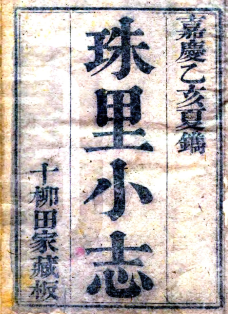 嘉慶乙亥夏鐫
珠里小志
十柳田家藏板